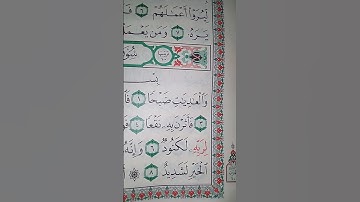 لِّيُرَوْا۟ أَعْمَـٰلَهُمْ ٦ فَـ
يَرَهُۥ ٧ وَمَن يَعْمَـ
سُورَ
بِسْـ
وَٱلْعَـٰدِيَـٰتِ ضَبْحًا ١ فَٱ
٣ فَأَثَرْنَ بِهِۦ نَقْعًا ٤ فَوَ
لِرَبِّهِۦ لَكَنُودٌ ٦ وَإِنَّهُۥ
ٱلْخَيْرِ لَشَدِيدٌ ٨ ۞